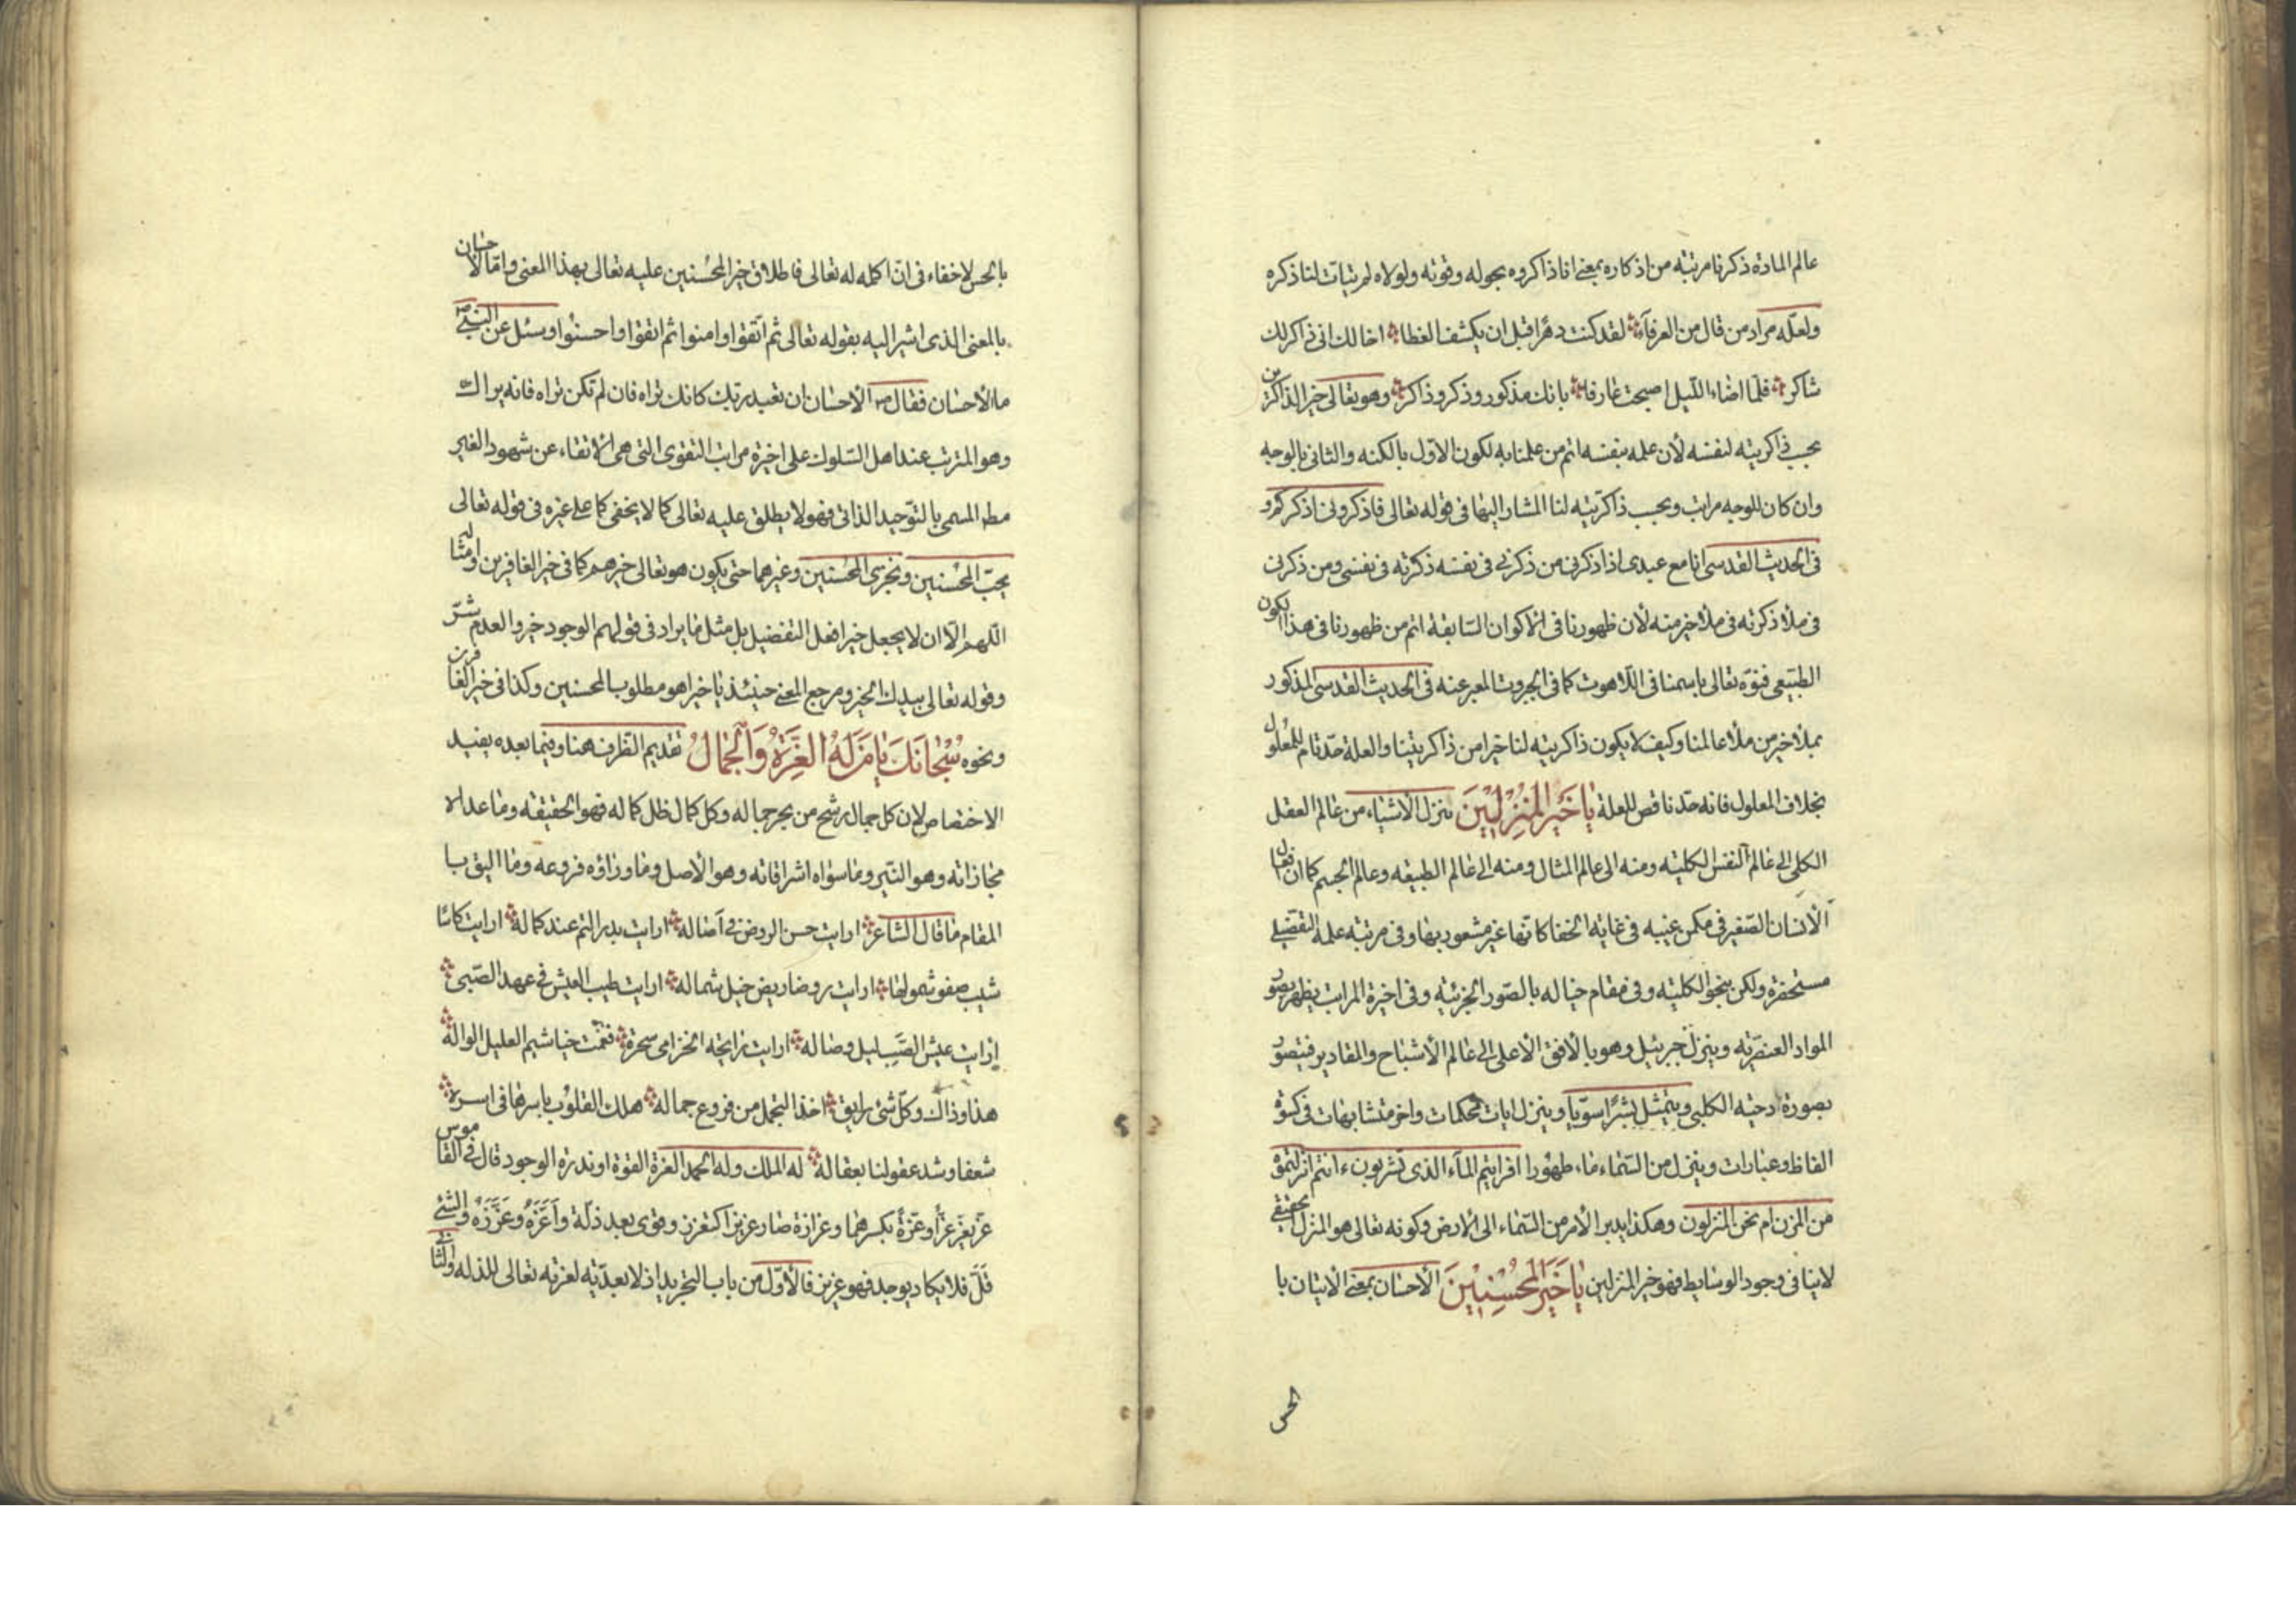 عالم المادة ذكرنا مرتبة من اذكاره بمعنى انا ذاكروه بحوله وقوته ولولاه لم يتأت لنا ذكره
ولعله مراد من قال من العرفاء لقد كنت دهرا قبل ان يكشف الغطا اخالك انى ذاكر لك
شاكر فلما اضاء الليل اصبحت عارفا بانك مذكور وذكر وذاكر وهو تعالى خير الذاكرين
بحسب ذاكريته لنفسه لأن علمه بنفسه اتم من علمنا به لكون الاول بالكنه والثانى بالوجه
وان كان للوجه مراتب وبحسب ذاكريته لنا المشار اليها فى قوله تعالى فاذكرونى اذكركم و
فى الحديث القدسى انا مع عبدى اذا ذكرنى من ذكرنى فى نفسه ذكرته فى نفسى ومن ذكرنى
فى ملأ ذكرته فى ملأ خير منه لأن ظهورنا فى الاكوان السابقة اتم من ظهورنا فى هذا الكون
الطبيعى فنوه تعالى باسمنا فى اللاهوت كما فى الجبروت المعبر عنه فى الحديث القدسى المذكور
بملأ خير من ملأ عالمنا وكيف لا يكون ذاكريته لنا خيرا من ذاكريتنا والعلة حد تام للمعلول
بخلاف المعلول فانه حد ناقص للعلة يا خير المنزلين ينزل الأشياء من عالم العقل
الكلى الى عالم النفس الكلية ومنه الى عالم المثال ومنه الى عالم الطبيعه وعالم الجسم كما ان فعال
الأنسان الصغير فى مكمن غيبه فى غاية الخفا كانها غير مشعور بها وفى مرتبة علمه التفصيلى
مستحضرة ولكن بنحو الكلية وفى مقام خياله بالصور الجزئية وفى اخيرة المراتب يظهر بصور
المواد العنصرية وينزل جبرئيل وهو بالافق الأعلى الى عالم الأشباح والمقادير فيتصور
بصورة دحية الكلبى ويتمثل بشرا سويا وينزل ايات محكمات واخر متشابهات فى كسوة
الفاظ وعبارات وينزل من السماء ماء طهورا افرايتم الماء الذى تشربون ءانتم انزلتموه
من المزن ام نحن المنزلون وهكذا يدبر الأمر من السماء الى الارض وكونه تعالى هو المنزل الحقيقى
لا ينافى وجود الوسايط فهو خير المنزلين يا خير المحسنين الأحسان بمعنى الأتيان با
الحسن
بالحسن لا خفاء فى ان اكمله له تعالى فاطلاق خير المحسنين عليه تعالى بهذا المعنى واما الاحسان
بالمعنى الذى اشير اليه بقوله تعالى ثم اتقوا وامنوا ثم اتقوا واحسنوا وسئل عن النبى ص
ما الأحسان فقال ص الأحسان ان تعبد ربك كانك تراه فان لم تكن تراه فانه يراك
وهو المترتب عند اهل السلوك على اخيرة مراتب التقوى التى هى الاتقاء عن شهود الغير
مط المسمى بالتوحيد الذاتى فهو لا يطلق عليه تعالى كما لا يخفى كما على غيره فى قوله تعالى
يحب المحسنين ونجزى المحسنين وغيرهما حتى يكون هو تعالى خيرهم كما فى خير الغافرين وامثاله
اللهم الا ان لا يجعل خير افعل التفضيل بل مثل ما يراد فى قولهم الوجود خير والعدم شر
وقوله تعالى بيدك الخير ومرجع المعنى حينئذ يا خيرا هو مطلوب المحسنين وكذا فى خير الغافرين
ونحوه سبحانك يا من له العزة والجمال تقديم الظرف هنا وفيما بعده يفيد
الاختصاص لان كل جمال رشح من بحر جماله وكل كمال ظل كماله فهو الحقيقه وما عداه
مجازاته وهو النير وما سواه اشراقاته وهو الأصل وما وراؤه فروعه وما اليق با
المقام ما قال الشاعر ارايت حسن الروض فى آصاله ارايت بدر التم عند كماله ارايت كاسا
شيب صفو شمولها ارايت روضا ريض خيل شماله ارايت طيب العيش فى عهد الصبى
ارايت عيش الصب ليل وصاله ارايت رايحة الخزامى سحرة فغمت خياشيم العليل الواله
هذا وذاك وكل شئ رايق اخذ التجمل من فروع جماله هلك القلوب باسرها فى اسره
شعفا وشد عقولنا بعقاله له الملك وله الحمد العزة القوة او ندرة الوجود قال فى القاموس
عز يعز عزا وعزة بكسرهما وعزازة صار عزيزا كتعزز وقوى بعد ذلة واعزه وعززه والشئ
قل فلا يكاد يوجد فهو عزيز فالأول من باب التجريد اذ لا بعدية لعزته تعالى للذله والثانى